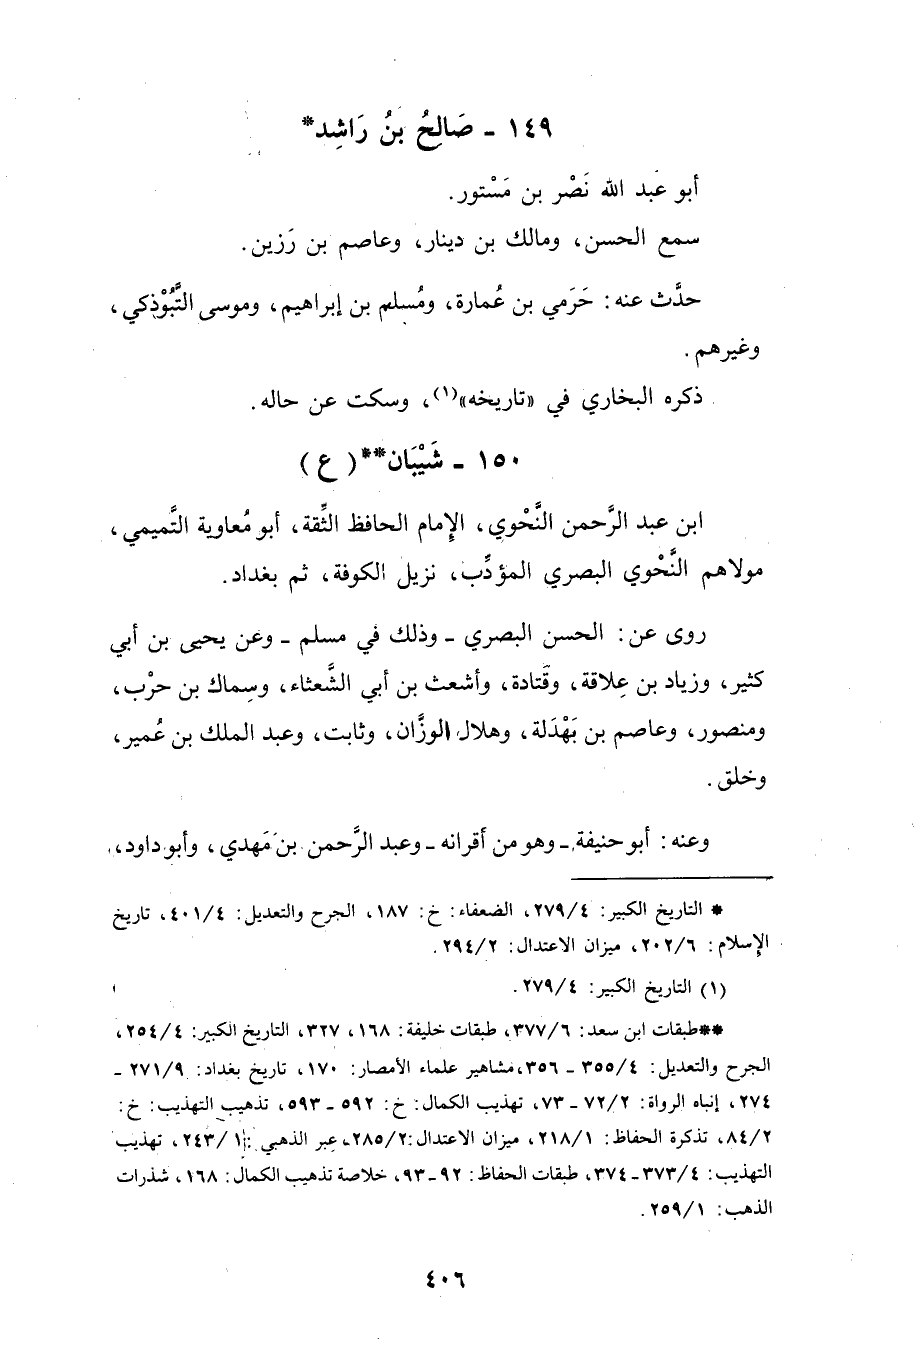 ١٤٩ - صَالِحُ بنُ رَاشِد*
أبو عبد الله نَصْر بن مَسْتور.
سمع الحسن، ومالك بن دينار، وعاصم بن رَزين.
حدَّث عنه: حَرَمي بن عُمارة، ومُسلم بن إبراهيم، وموسى التَّبُوْذكي،
وغيرهم.
ذكره البخاري في «تاريخه»(١)، وسكت عن حاله.
١٥٠ - شَيْبَان** (ع)
ابن عبد الرَّحمن النَّحْوي، الإمام الحافظ الثِّقة، أبو مُعاوية التَّميمي،
مولاهم النَّحْوي البصري المؤدِّب، نزيل الكوفة، ثم بغداد.
روى عن: الحسن البصري - وذلك في مسلم - وعن يحيى بن أبي
كثير، وزياد بن عِلاقة، وقَتادة، وأشعث بن أبي الشَّعثاء، وسِماك بن حرْب،
ومنصور، وعاصم بن بَهْدَلة، وهلال الوزَّان، وثابت، وعبد الملك بن عُمير،
وخلق.
وعنه: أبو حنيفة - وهو من أقرانه - وعبد الرَّحمن بن مَهدي، وأبو داود،
* التاريخ الكبير: ٢٧٩/٤، الضعفاء: خ: ١٨٧، الجرح والتعديل: ٤٠١/٤، تاريخ
الإسلام: ٢٠٢/٦، ميزان الاعتدال: ٢٩٤/٢.
(١) التاريخ الكبير: ٢٧٩/٤.
**طبقات ابن سعد: ٣٧٧/٦، طبقات خليفة: ١٦٨، ٣٢٧، التاريخ الكبير: ٢٥٤/٤،
الجرح والتعديل: ٣٥٥/٤ - ٣٥٦، مشاهير علماء الأمصار: ١٧٠، تاريخ بغداد: ٢٧١/٩ -
٢٧٤، إنباه الرواة: ٧٢/٢ - ٧٣، تهذيب الكمال: خ: ٥٩٢ - ٥٩٣، تذهيب التهذيب: خ:
٨٤/٢، تذكرة الحفاظ: ٢١٨/١، ميزان الاعتدال: ٢٨٥/٢، عبر الذهبي: ٢٤٣/١، تهذيب
التهذيب: ٣٧٣/٤ - ٣٧٤، طبقات الحفاظ: ٩٢ - ٩٣، خلاصة تذهيب الكمال: ١٦٨، شذرات
الذهب: ٢٥٩/١.
٤٠٦